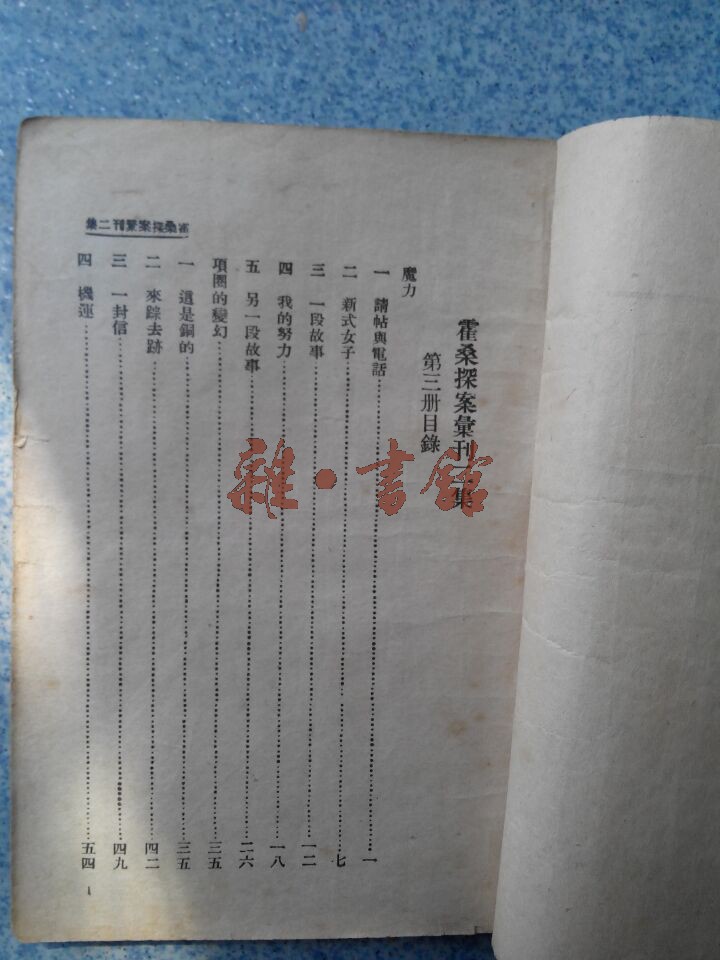 霍桑探案彙刊二集
霍桑探案彙刊二集
第三册目錄
魔力
一 請帖與電話……一
二 新式女子……七
三 一段故事……一二
四 我的努力……一八
五 另一段故事……二六
項圈的變幻……三五
一 這是銅的……三五
二 來踪去跡……四二
三 一封信……四九
四 機運……五四
1
雜·書館